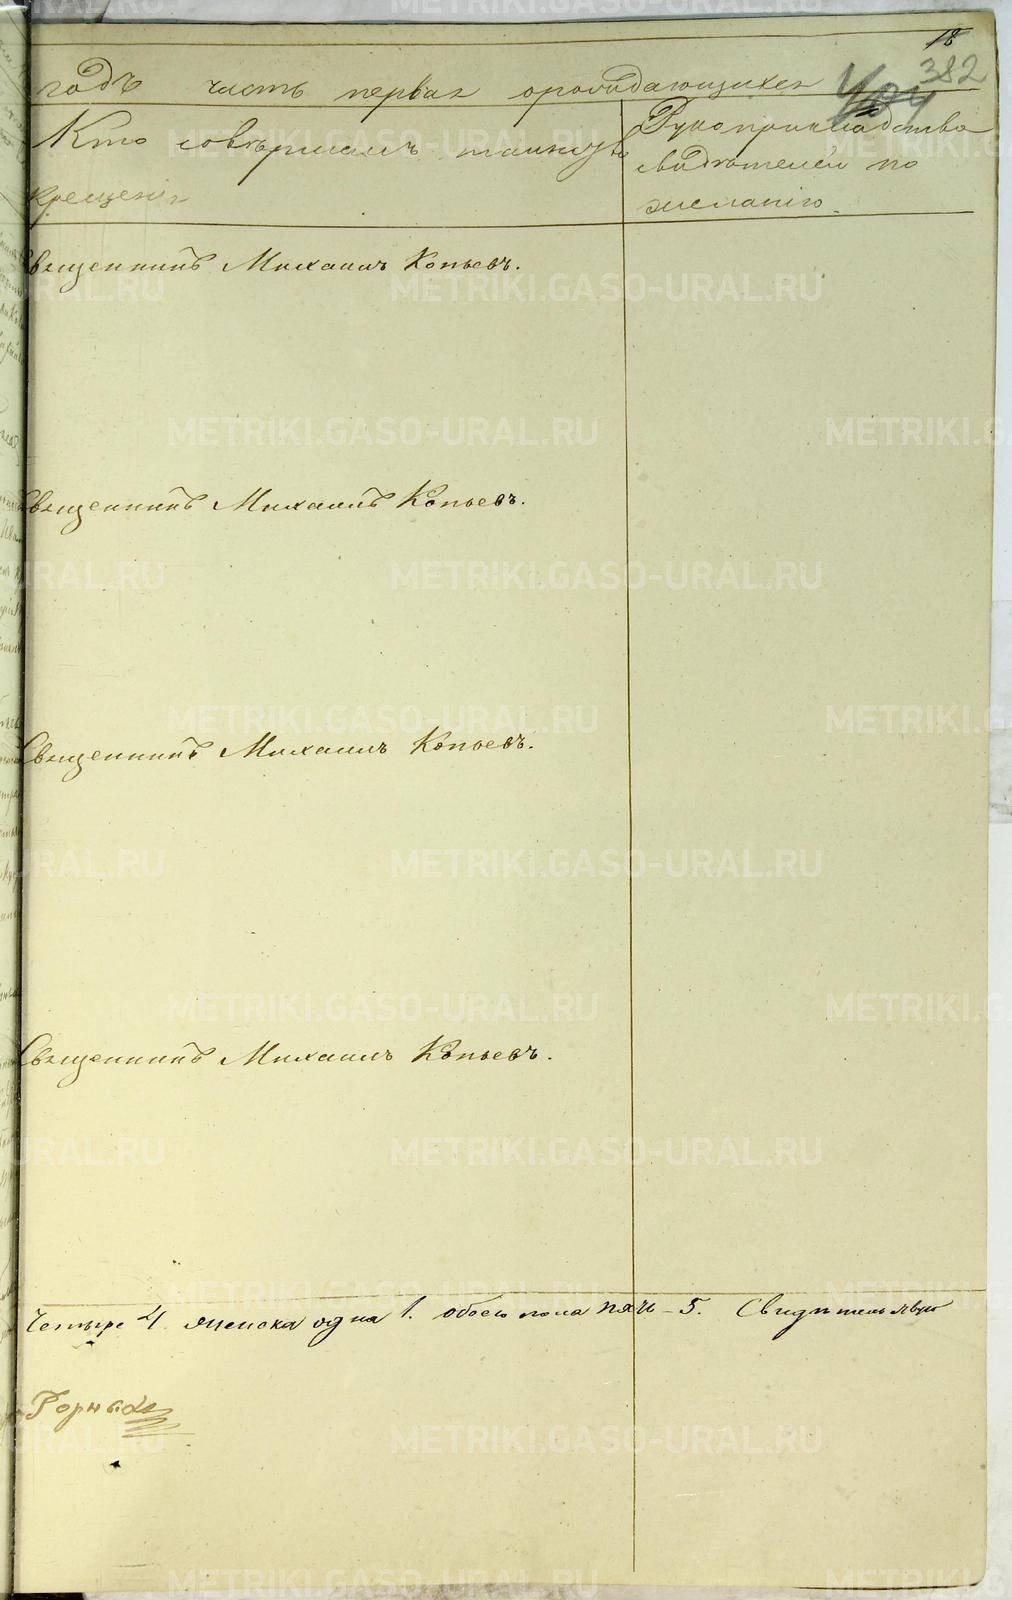 18
382
404
годъ часть первая о рождающихся
Кто совершалъ таинство
крещенія
Рукоприкладства
свидѣтелей по
желанію.
Священникъ Михаилъ Копьевъ.
Священникъ Михаилъ Копьевъ.
Священникъ Михаилъ Копьевъ.
Священникъ Михаилъ Копьевъ.
четыре 4 женска одна 1. обоего пола пять - 5. Свидѣтельствую
METRIKI.GASO-URAL.RU